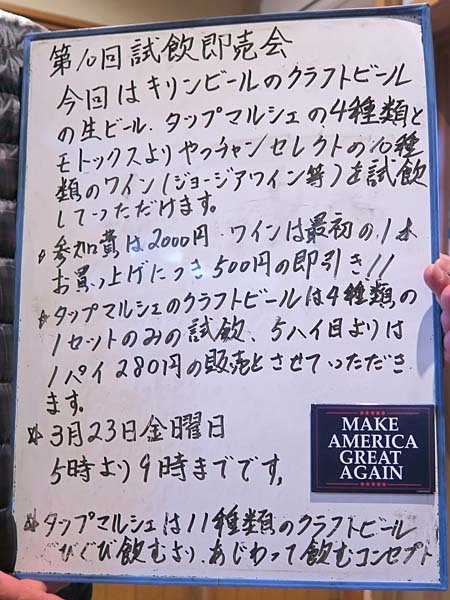 第10回試飲即売会
今回はキリンビールのクラフトビール
の生ビール、タップマルシェの4種類と
モトックスよりやっチャンセレクトの10種
類のワイン(ジョージアワイン等)を試飲
してっただけます。
参加費は2000円 ワインは最初の1本
お買っ上げにつき500円の即引き!!
タップマルシェのクラフトビールは4種類の
1セットのみの試飲、5ハイ目よりは
1パイ280円の販売とさせてっただき
ます。
3月23日金曜日
5時より9時までです。
MAKE
AMERICA
GREAT
AGAIN
タップマルシェは11種類のクラフトビール
ぐびぐび飲むより、あじわって飲むコンセプト